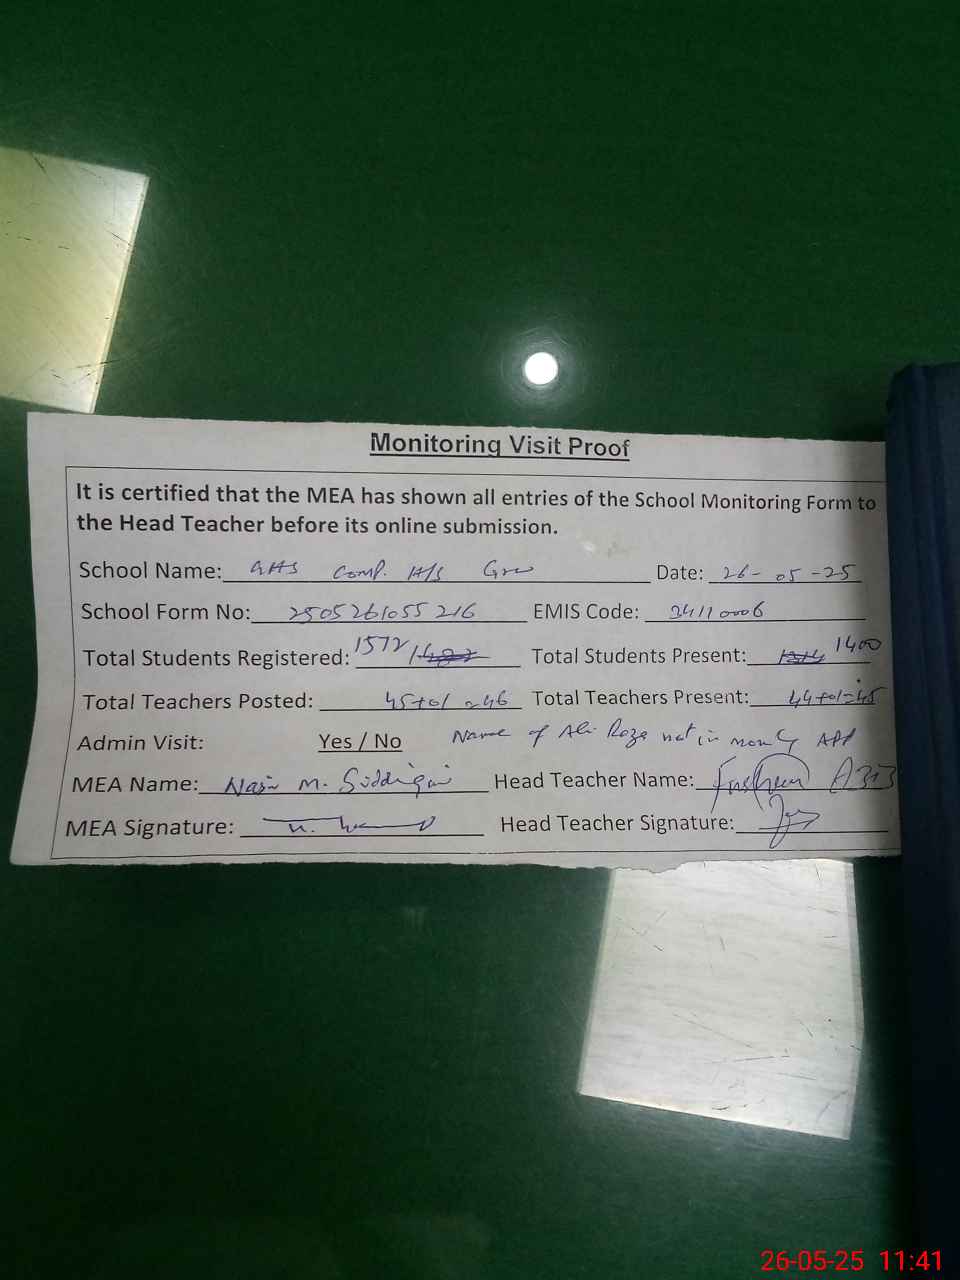 Monitoring Visit Proof
It is certified that the MEA has shown all entries of the School Monitoring Form to
the Head Teacher before its online submission.
School Name: GHS Comp. H/S Grw Date: 26-05-25
School Form No: 2505261055216 EMIS Code: 34110006
Total Students Registered: 1572 Total Students Present: 1400
Total Teachers Posted: 45+01=46 Total Teachers Present: 44+01=45
Admin Visit: Yes / No Name of Ali Raza not in App
MEA Name: M. Siddiqui Head Teacher Name:
MEA Signature: Head Teacher Signature:
26-05-25 11:41